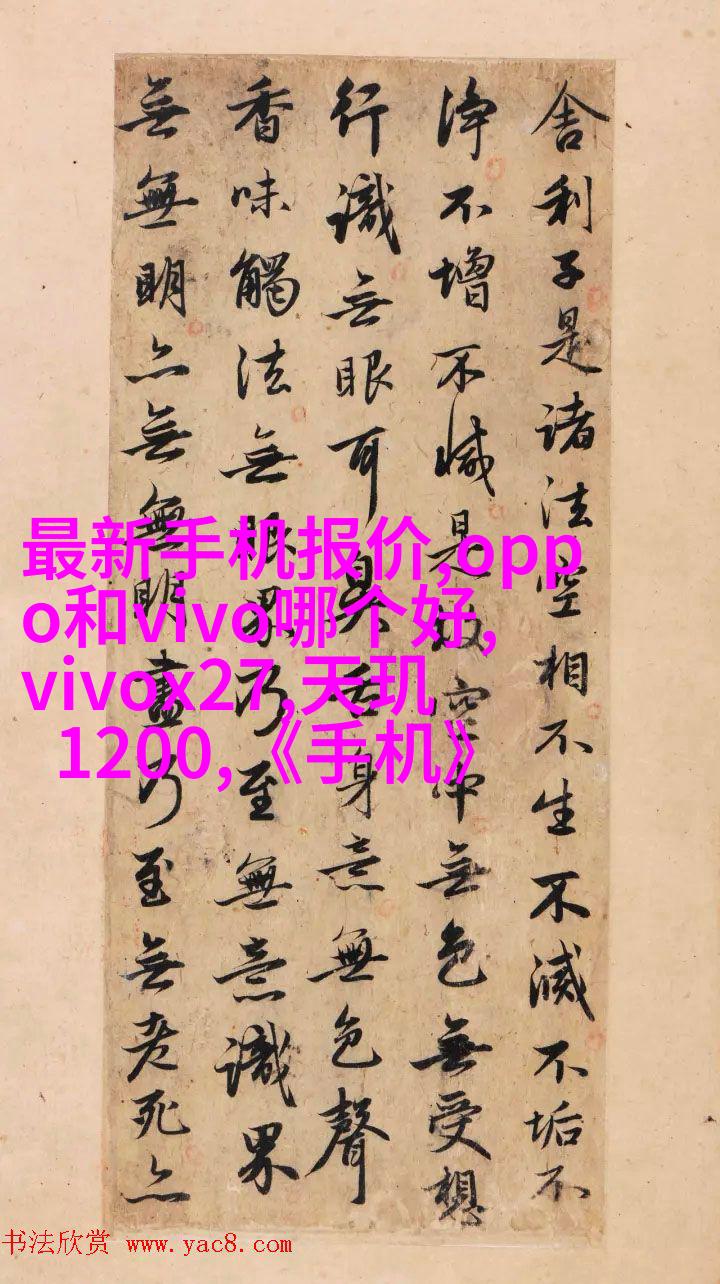 舎利子是諸法空相不生不滅不垢不
淨不增不減是故空中無色無受想
行識无眼耳鼻舌身意無色聲
香味觸法無眼界乃至無意識界
無無明亦無無明盡乃至無老死亦
最新手机报价,opp
o和vivo哪个好,
vivox27,天玑
1200,《手机》
书法欣赏 www.yac8.com